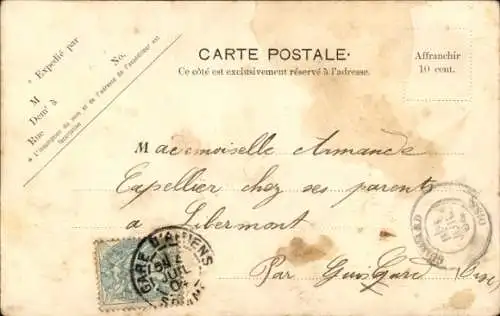 CARTE POSTALE.
Ce côté est exclusivement réservé à l'adresse.
Affranchir
10 cent.
* Expédié par
No.
M
Demt à
Rue
* L'indication du nom et de l'adresse de l'expéditeur est
facultative
Mademoiselle Armande
Capellier chez ses parents
à Libermont
Par Guiscard Oise
GARE D'AMIENS
JUIL
04
SOMME
GUISCARD
OISE